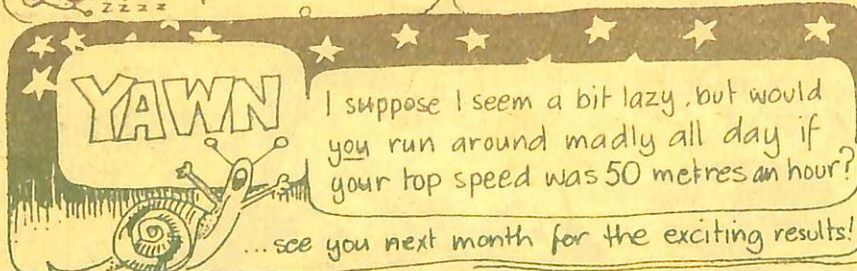 zzzz
YAWN
I suppose I seem a bit lazy, but would
you run around madly all day if
your top speed was 50 metres an hour?
...see you next month for the exciting results!